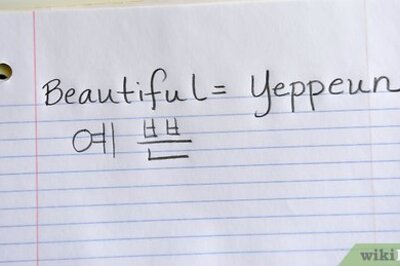 Beautiful = Yeppeun
예쁜
wiki